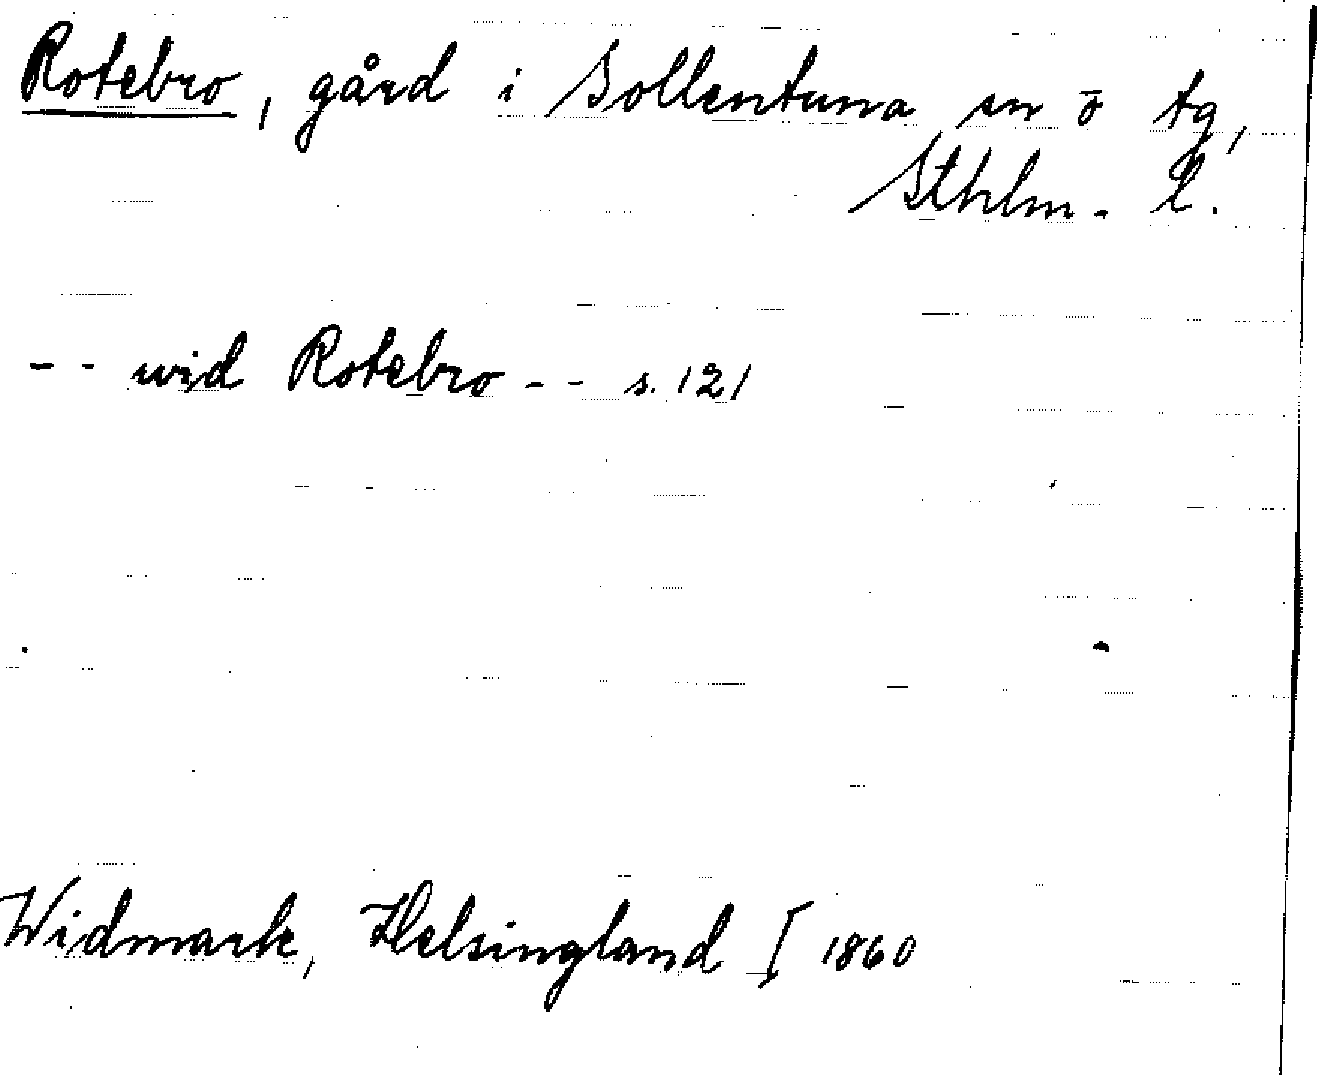 Rotebro, gård i Sollentuna sn o tg,
Sthlm. l.
-- wid Rotebro -- s. 121
Widmark, Helsingland I 1860